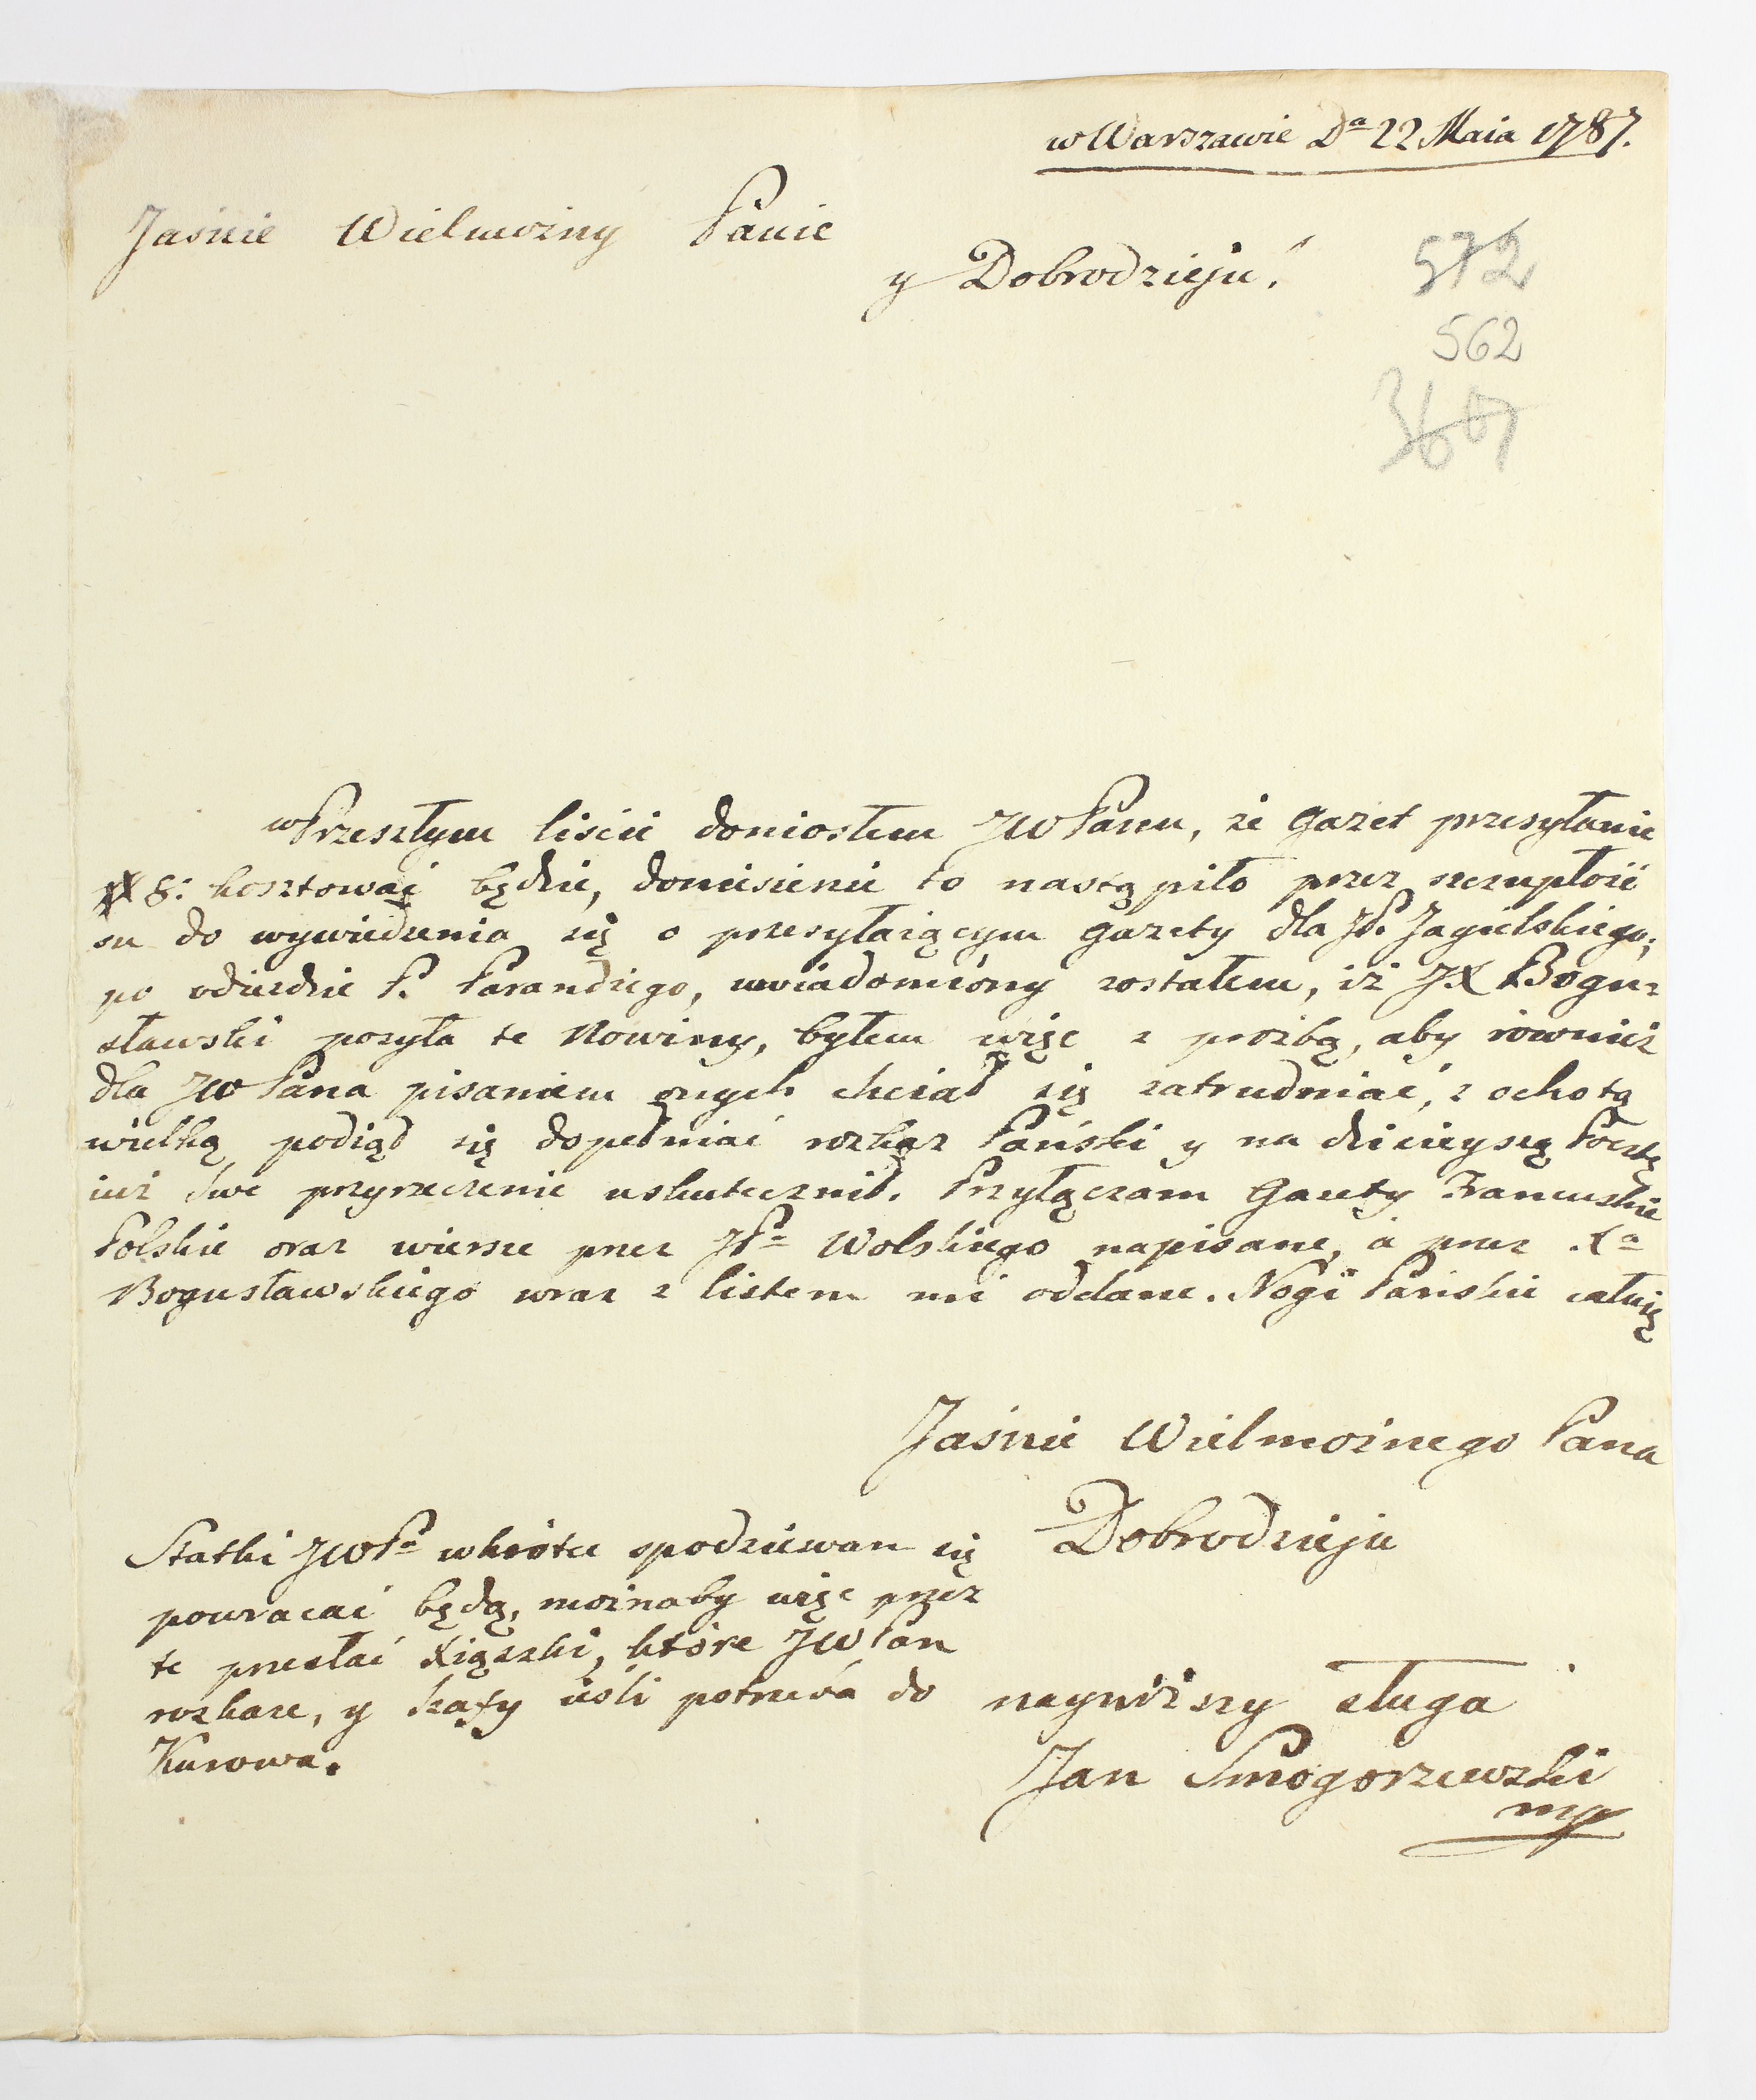 w Warszawie Da 22 Maia 1787.
Jaśnie Wielmożny Panie
y Dobrodzieju!
572
562
w Przeszłym liście doniosłem JWPanu, że Gazet przesyłanie
# 8: kosztować będzie, doniesienie to nastąpiło przez szczupłość
su do wywiedzenia się o przesyłaiącym gazety dla JP. Jagielskiego;
po odieździe P. Parandiego, uwiadomióny zostałem, iż JX Bogu=
sławski posyła te Nowiny, byłem więc z proźbą, aby rownież
dla JWPana pisaniem onych chciał się zatrudniać, z ochotą
wielką podiął się dopełniać rozkaz Pański y na dzisieyszą Pocztę
iuż swe przyrzeczenie uskutecznił. Przyłączam Gazety Francuskie
Polskie oraz wiersze przez JPa Wolskiego napisane, á przez Xa
Bogusławskiego wraz z listem mi oddane. Nogi Pańskie całuię
Jaśnie Wielmożnego Pana
Dobrodzieju
Statki JWPa wkrótce spodziewam się
powracać będą, możnaby więc przez
te przesłać Xiąszki, które JWPan
rozkaże, y Szafy ieśli potrzeba do
Kurowa.
nayniższy sługa
Jan Smogorzewski
mp